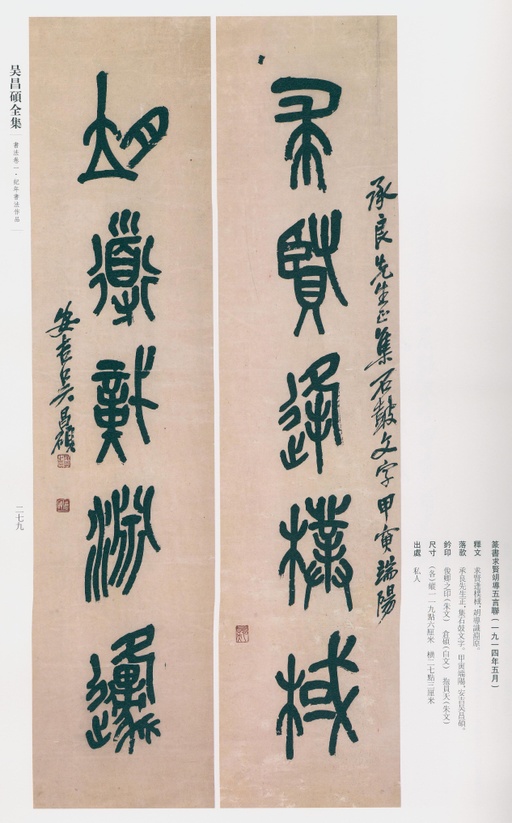 求賢逢樸棫
承良先生正集石鼓文字甲寅端陽
胡導識淵原
安吉吳昌碩
篆書求賢胡導五言聯（一九一四年五月）
釋文　求賢逢樸棫，胡導識淵原。
落款　承良先生正，集石鼓文字。甲寅端陽，安吉吳昌碩。
鈐印　俊卿之印（朱文）　倉碩（白文）　（朱文）
尺寸　（各）縱一一九點六厘米　橫二七點三厘米
出處　私人
吴昌碩全集
書法卷一·紀年書法作品
二七九